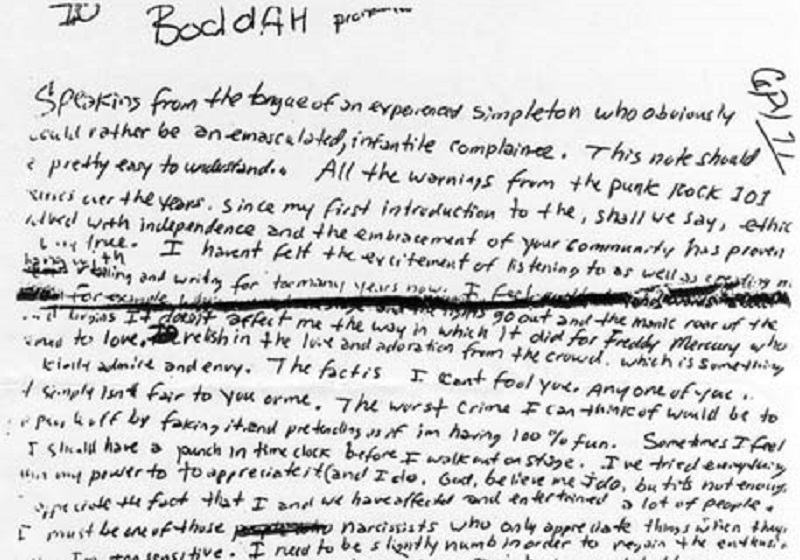 To BoddAH
Speaking from the tongue of an experienced simpleton who obviously
would rather be an emasculated, infantile complainee. This note should
pretty easy to understand. All the warnings from the punk Rock 101
over the years. Since my first introduction to the, shall we say, ethic
with independence and the embracement of your community has proven
true. I havent felt the excitement of listening to as well as creating
along with reading and writing for too many years now. I feel
for example when and the lights go out and the manic roar of the
begins It doesnt affect me the way in which It did for Freddy Mercury who
to love, relish in the love and adoration from the crowd. which is something
admire and envy. The fact is I cant fool you. Any one of you.
simply isnt fair to you or me. The worst crime I can think of would be to
off by faking it and pretending as if im having 100% fun. Sometimes I feel
I should have a punch in time clock before I walk out on stage. I've tried everything
my power to to appreciate it (and I do. God, believe me I do, but its not enough.
appreciate the fact that I and we have affected and entertained a lot of people.
I must be one of those narcissists who only appreciate things when they
sensitive. I need to be slightly numb in order to regain the